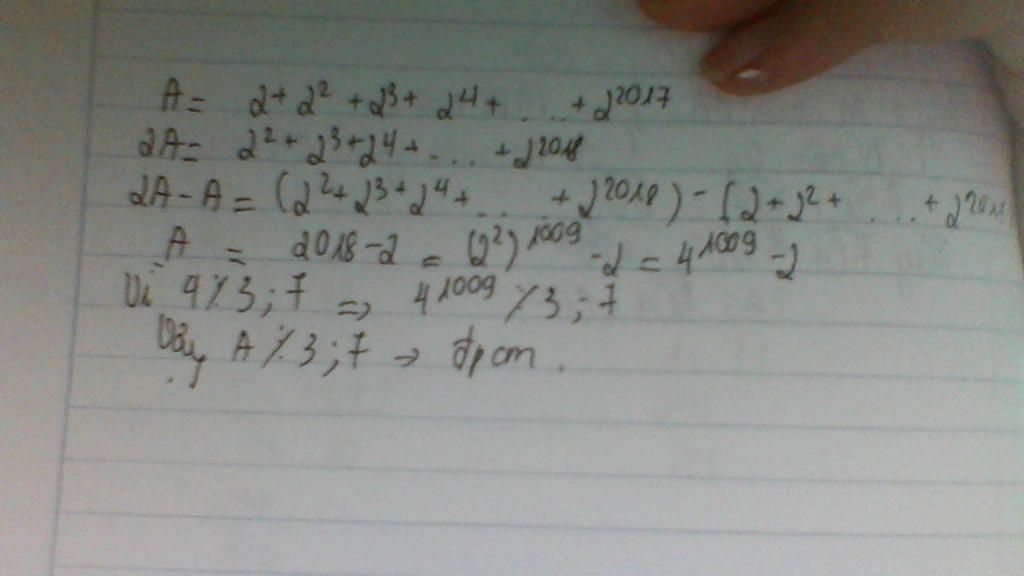 A = 2 + 2² + 2³ + 2⁴ + ..... + 2²⁰¹⁷
2A = 2² + 2³ + 2⁴ + .... + 2²⁰¹⁸
2A - A = (2² + 2³ + 2⁴ + .... + 2²⁰¹⁸) - (2 + 2² + .... + 2²⁰¹⁷
A = 2018 - 2 = (2²)¹⁰⁰⁹ - 2 = 4¹⁰⁰⁹ - 2
Vì 4 ٪ 3 ; 7 => 4¹⁰⁰⁹ ٪ 3 ; 7
Vậy A ٪ 3 ; 7 → đpcm.